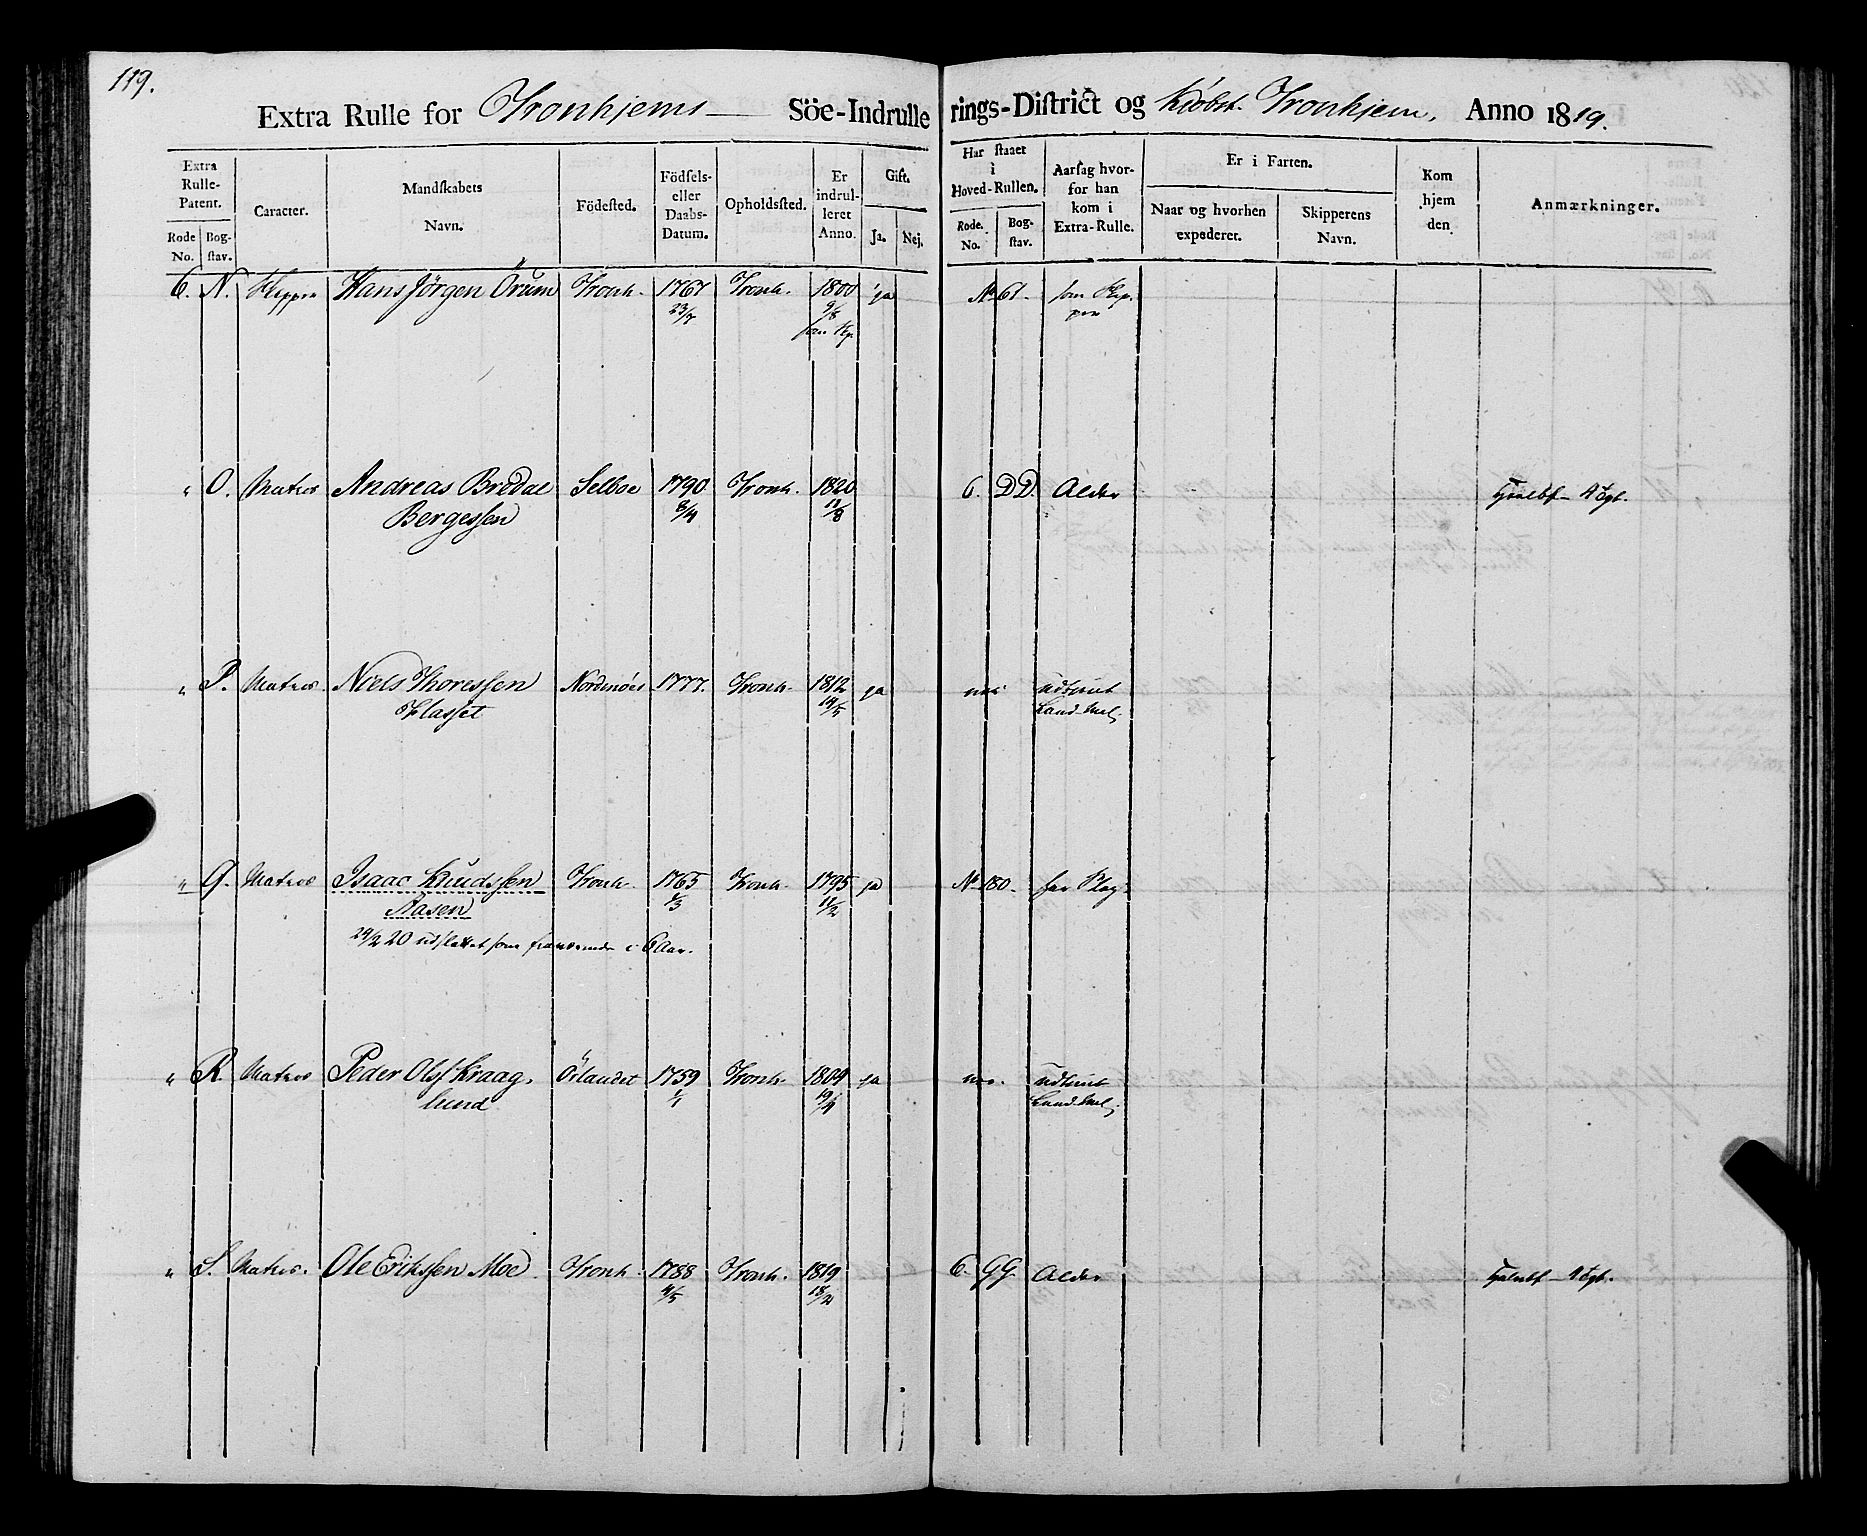 119.
Extra Rulle for Tronhjems Söe-Indrullerings-District og Kiöbst. Tronhjem, Anno 1819.
Extra Rulle-Patent. Caracter. Mandskabets Navn. Födested. Födsels- eller Daabs-Datum. Opholdssted. Er indrulleret Anno. Gift. Har staaet i Hoved-Rullen. Aarsag hvorfor han kom i Extra-Rulle. Er i Farten. Kom hjem den. Anmærkninger.
Rode No. Bogstav. Ja. Nej. Rode. No. Bogstav. Naar og hvorhen expederet. Skipperens Navn.
6. N. Skipper Hans Jörgen Örum Tronh. 1767 Tronh. 1800 ja No 61. som Skip-
23/7 9/8 per
som Skp.
" O. Matros Andreas Bredal Selboe 1790 Tronh. 1820 6. DD. Alder
Bergessen
" P. Matros Niels Thoressen Nordmöer 1777. Tronh. 1812 ja udtient
Klasset 14/5 Land-Mel;
" Q. Matros Isaac Knudssen Tronh. 1765 Tronh. 1795 ja No 180.
Aasen 11/2
29/2 20 udslettet som fraværende i 6 Aar.
" R. Matros Peder Ols: Kraag- Örlandet 1759 Tronh. 1809 ja udtient
lund 1/1 19/4 Land-Mel;
" S. Matros. Ole Erikssen Moe Tronh. 1788 Tronh. 1819 6. GG. Alder
4/5 18/2